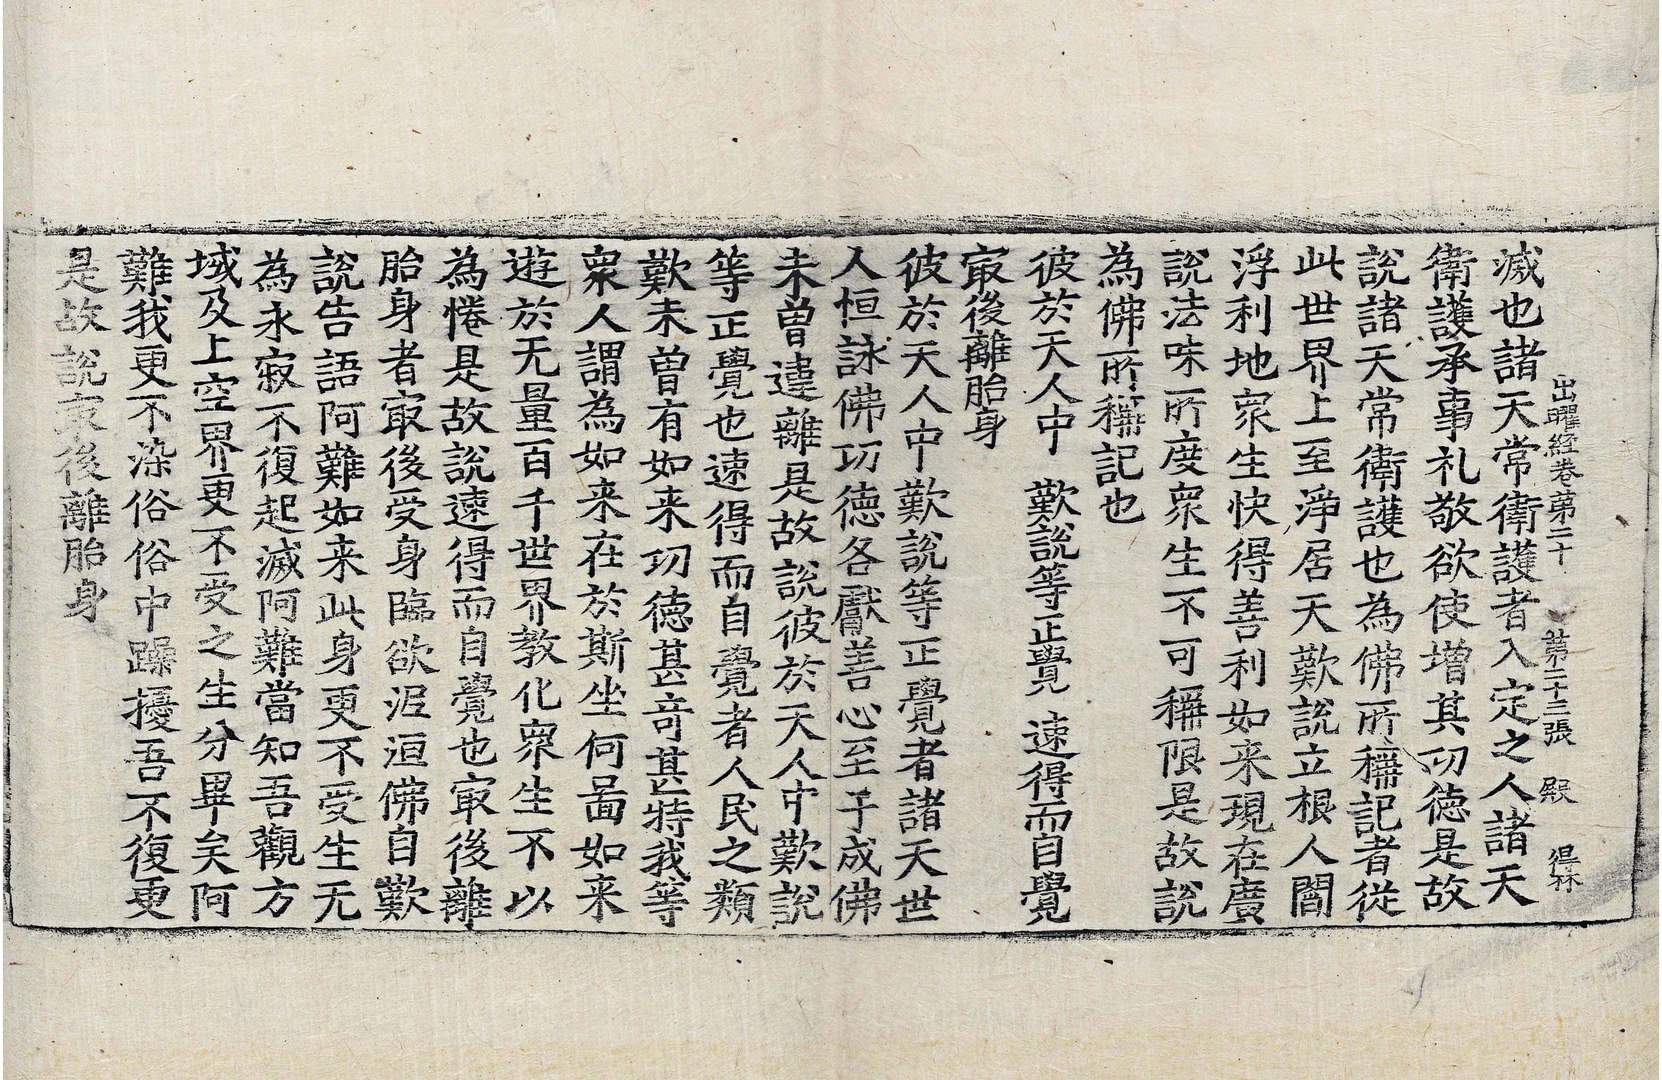 出曜經卷苐二十 苐二十三張 殿 得林
滅也諸天常衛護者入定之人諸天
衛護承事礼敬欲使增其功德是故
說諸天常衛護也為佛所稱記者從
此世界上至淨居天歎說立根人閻
浮利地衆生快得善利如来現在廣
說法味所度衆生不可稱限是故說
為佛所稱記也
彼於天人中 歎說等正覺 速得而自覺
㝡後離胎身
彼於天人中歎說等正覺者諸天世
人恒詠佛功德各獻善心至于成佛
未曾違離是故說彼於天人中歎說
等正覺也速得而自覺者人民之類
歎未曾有如来功德甚竒甚特我等
衆人謂為如来在於斯坐何啚如来
遊於无量百千世界教化衆生不以
為惓是故說速得而自覺也㝡後離
胎身者㝡後受身臨欲泥洹佛自歎
說告語阿難如来此身更不受生无
為永寂不復起滅阿難當知吾觀方
域及上空界更不受之生分畢矣阿
難我更不染俗俗中躁擾吾不復更
是故說㝡後離胎身